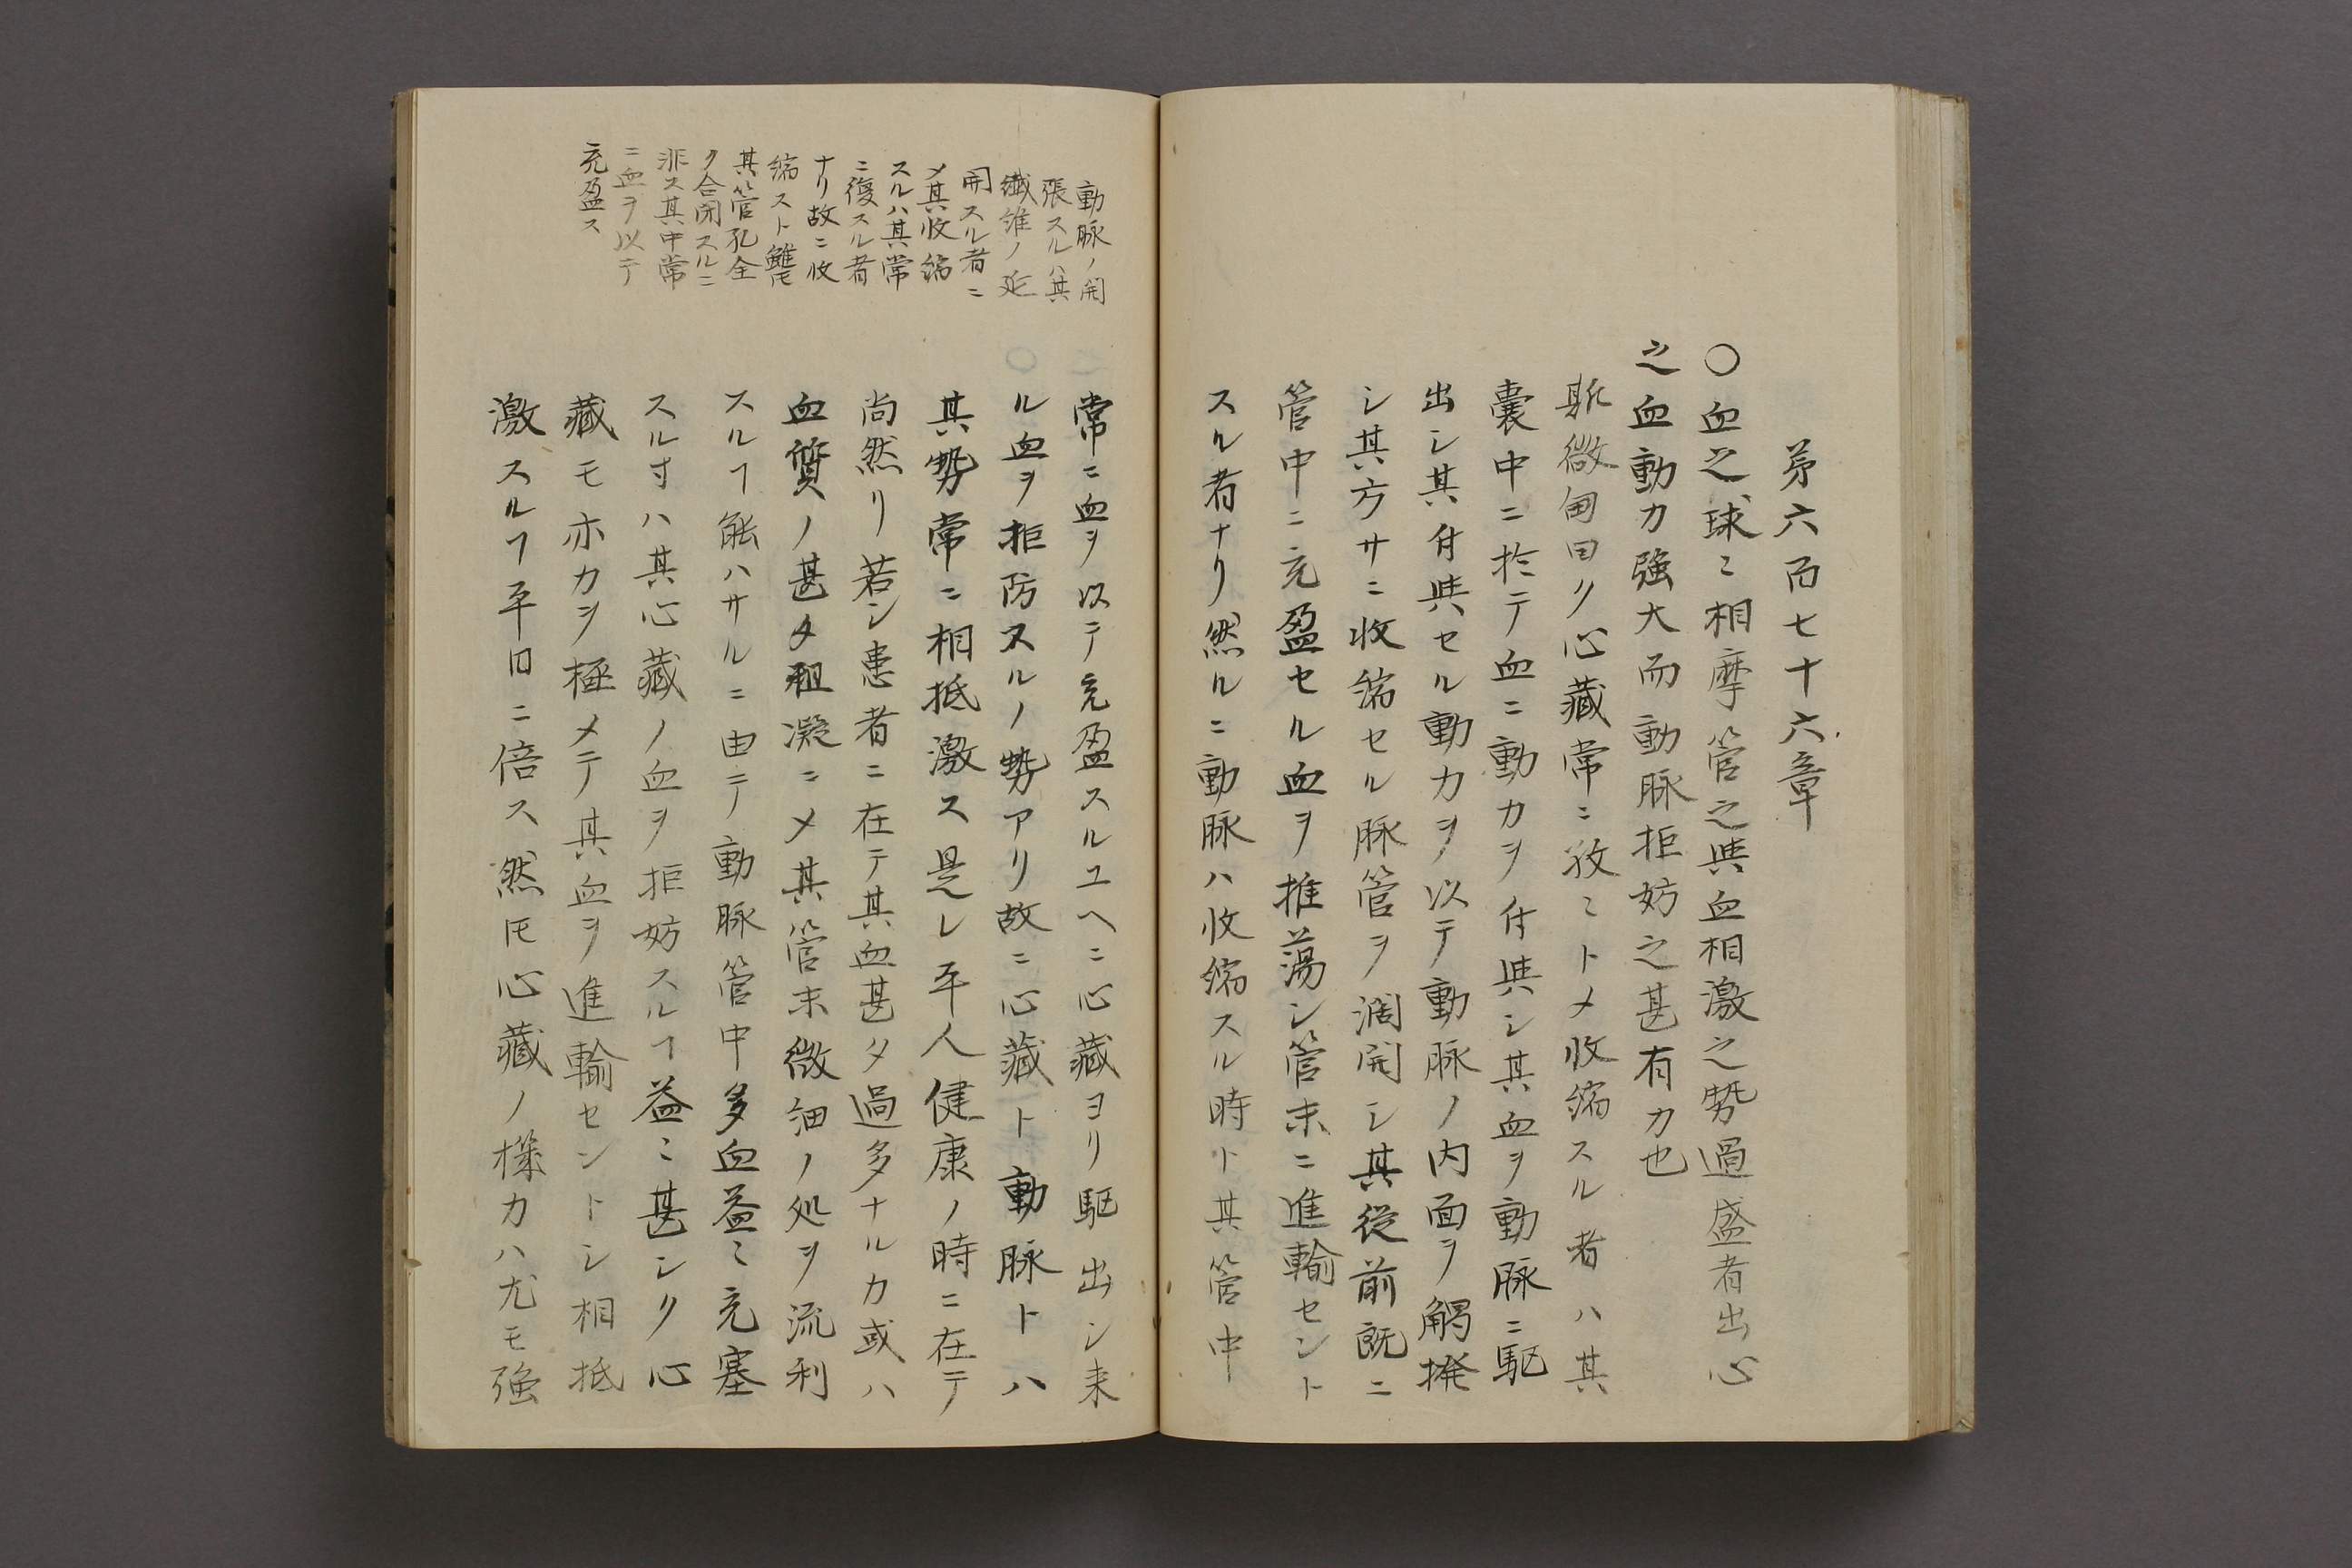 第六百七十六章
○血之球々相摩管之與血相激之勢過盛者出心
之血動力強大而動脉拒妨之甚有力也
斯微甸曰ク心藏常ニ孜々トメ收縮スル者ハ其
囊中ニ於テ血ニ動力ヲ付與シ其血ヲ動脉ニ駆
出シ其付與セル動力ヲ以テ動脉ノ内面ヲ觸揆
シ其方サニ收縮セル脉管ヲ濶開シ其從前既ニ
管中ニ充盈セル血ヲ推蕩シ管末ニ進輸セント
スル者ナリ然ルニ動脉ハ收縮スル時ト其管中
動脉ノ開
張スルハ其
纎維ノ延
開スル者ニ
メ其收縮
スルハ其常
ニ復スル者
ナリ故ニ收
縮スト雖モ
其管孔全
ク合閉スルニ
非ス其中常
ニ血ヲ以テ
充盈ス
常ニ血ヲ以テ充盈スルユヘニ心藏ヨリ駆出シ来
ル血ヲ拒防スルノ勢アリ故ニ心藏ト動脉トハ
其勢常ニ相抵激ス是レ平人健康ノ時ニ在テ
尚然リ若シ患者ニ在テ其血甚タ過多ナルカ或ハ
血質ノ甚タ粗凝ニメ其管末微細ノ処ヲ流利
スルヿ能ハサルニ由テ動脉管中多血益々充塞
スル寸ハ其心藏ノ血ヲ拒妨スルヿ益々甚シク心
藏モ亦力ヲ極メテ其血ヲ進輸セントシ相抵
激スルヿ平日ニ倍ス然𪜈心藏ノ機力ハ尤モ強